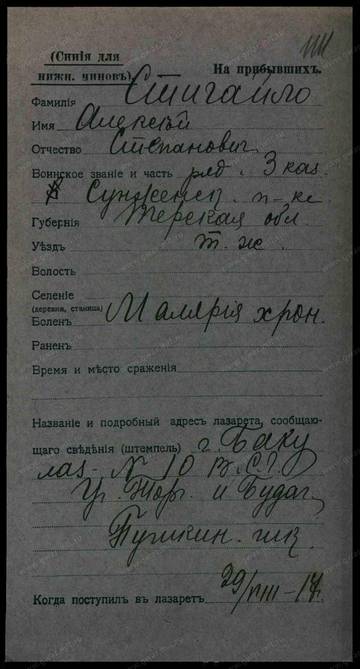 (Синія для
нижн. чиновъ).
На прибывшихъ.
Фамилія Стигайло
Имя Алексѣй
Отчество Степанович
Воинское званіе и часть ряд. 3 каз.
Сунженск. п-ка
Губернія Терская обл
Уѣздъ т. ж.
Волость
Селеніе
(деревня, станица)
Боленъ Малярія хрон.
Раненъ
Время и мѣсто сраженія
Названіе и подробный адресъ лазарета, сообщаю-
щаго свѣдѣнія (штемпель) г. Баку
лаз. № 10 В.С.Г.
Уг. Торг. и Будаг.
Пушкин. шк.
Когда поступилъ въ лазаретъ 29/VIII-17.